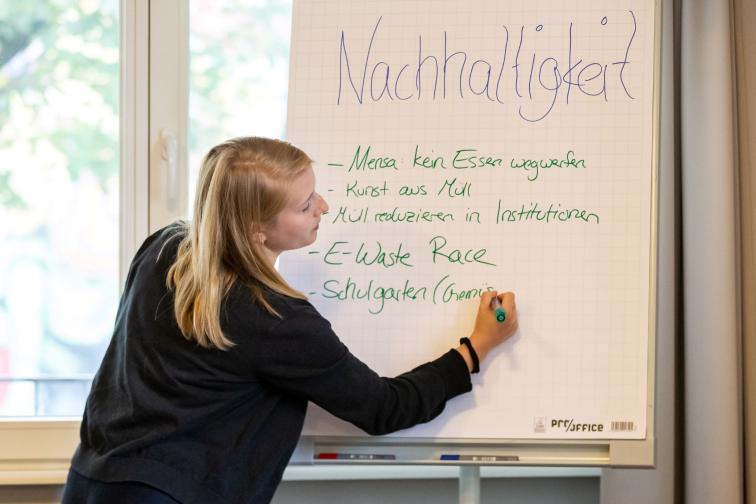 Nachhaltigkeit
- Mensa: kein Essen wegwerfen
- Kunst aus Müll
- Müll reduzieren in Institutionen
- E-Waste Race
- Schulgarten (Gemüs
PRO/OFFICE